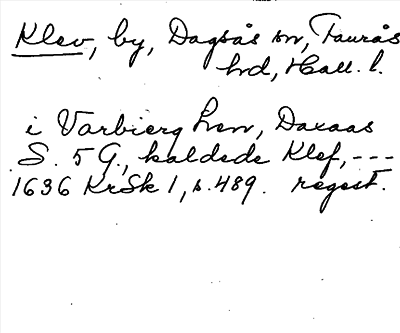 Klev, by, Dagsås sn, Faurås
hd, Hall. l.
i Varbierg Len, Daxaas
S. 5 G., kaldede Klef, ---
1636 KrSk 1, s. 489. regest.